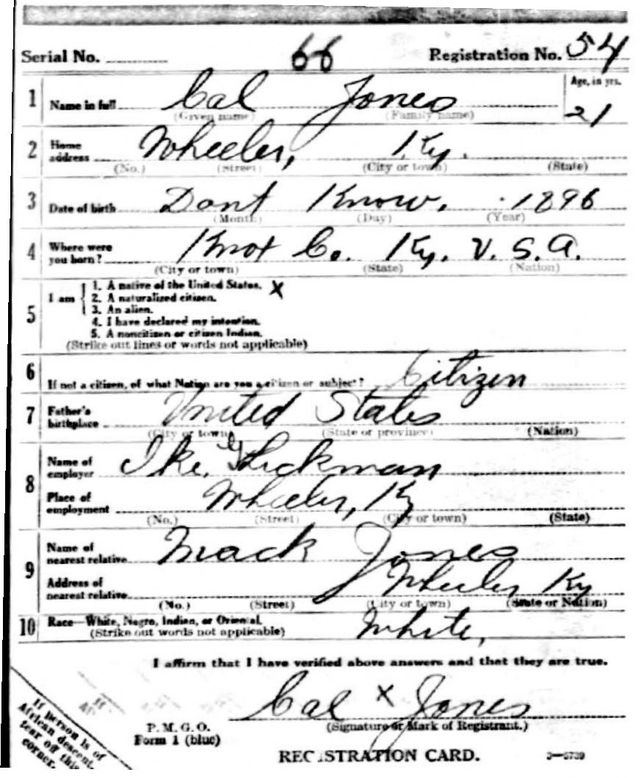 Serial No. 66 Registration No. 54
1 Name in full Cal Jones Age, in yrs.
(Given name) (Family name) 21
2 Home address Wheeler, Ky.
(No.) (Street) (City or town) (State)
3 Date of birth Dont Know. 1896
(Month) (Day) (Year)
4 Where were you born? Knox Co. Ky. U.S.A.
(City or town) (State) (Nation)
5 I am
1. A native of the United States. X
2. A naturalized citizen.
3. An alien.
4. I have declared my intention.
5. A noncitizen or citizen Indian.
(Strike out lines or words not applicable)
6 If not a citizen, of what Nation are you a citizen or subject? Citizen
7 Father's birthplace United States
(City or town) (State or province) (Nation)
8 Name of employer Ike Hickman
Place of employment Wheeler, Ky
(No.) (Street) (City or town) (State)
9 Name of nearest relative Mack Jones
Address of nearest relative Wheeler Ky
(No.) (Street) (City or town) (State or Nation)
10 Race—White, Negro, Indian, or Oriental. White,
(Strike out words not applicable)
I affirm that I have verified above answers and that they are true.
Cal X Jones
P. M. G. O. (Signature or Mark of Registrant.)
Form 1 (blue)
REGISTRATION CARD. 3—6739
If person is of
African descent,
tear off this
corner.